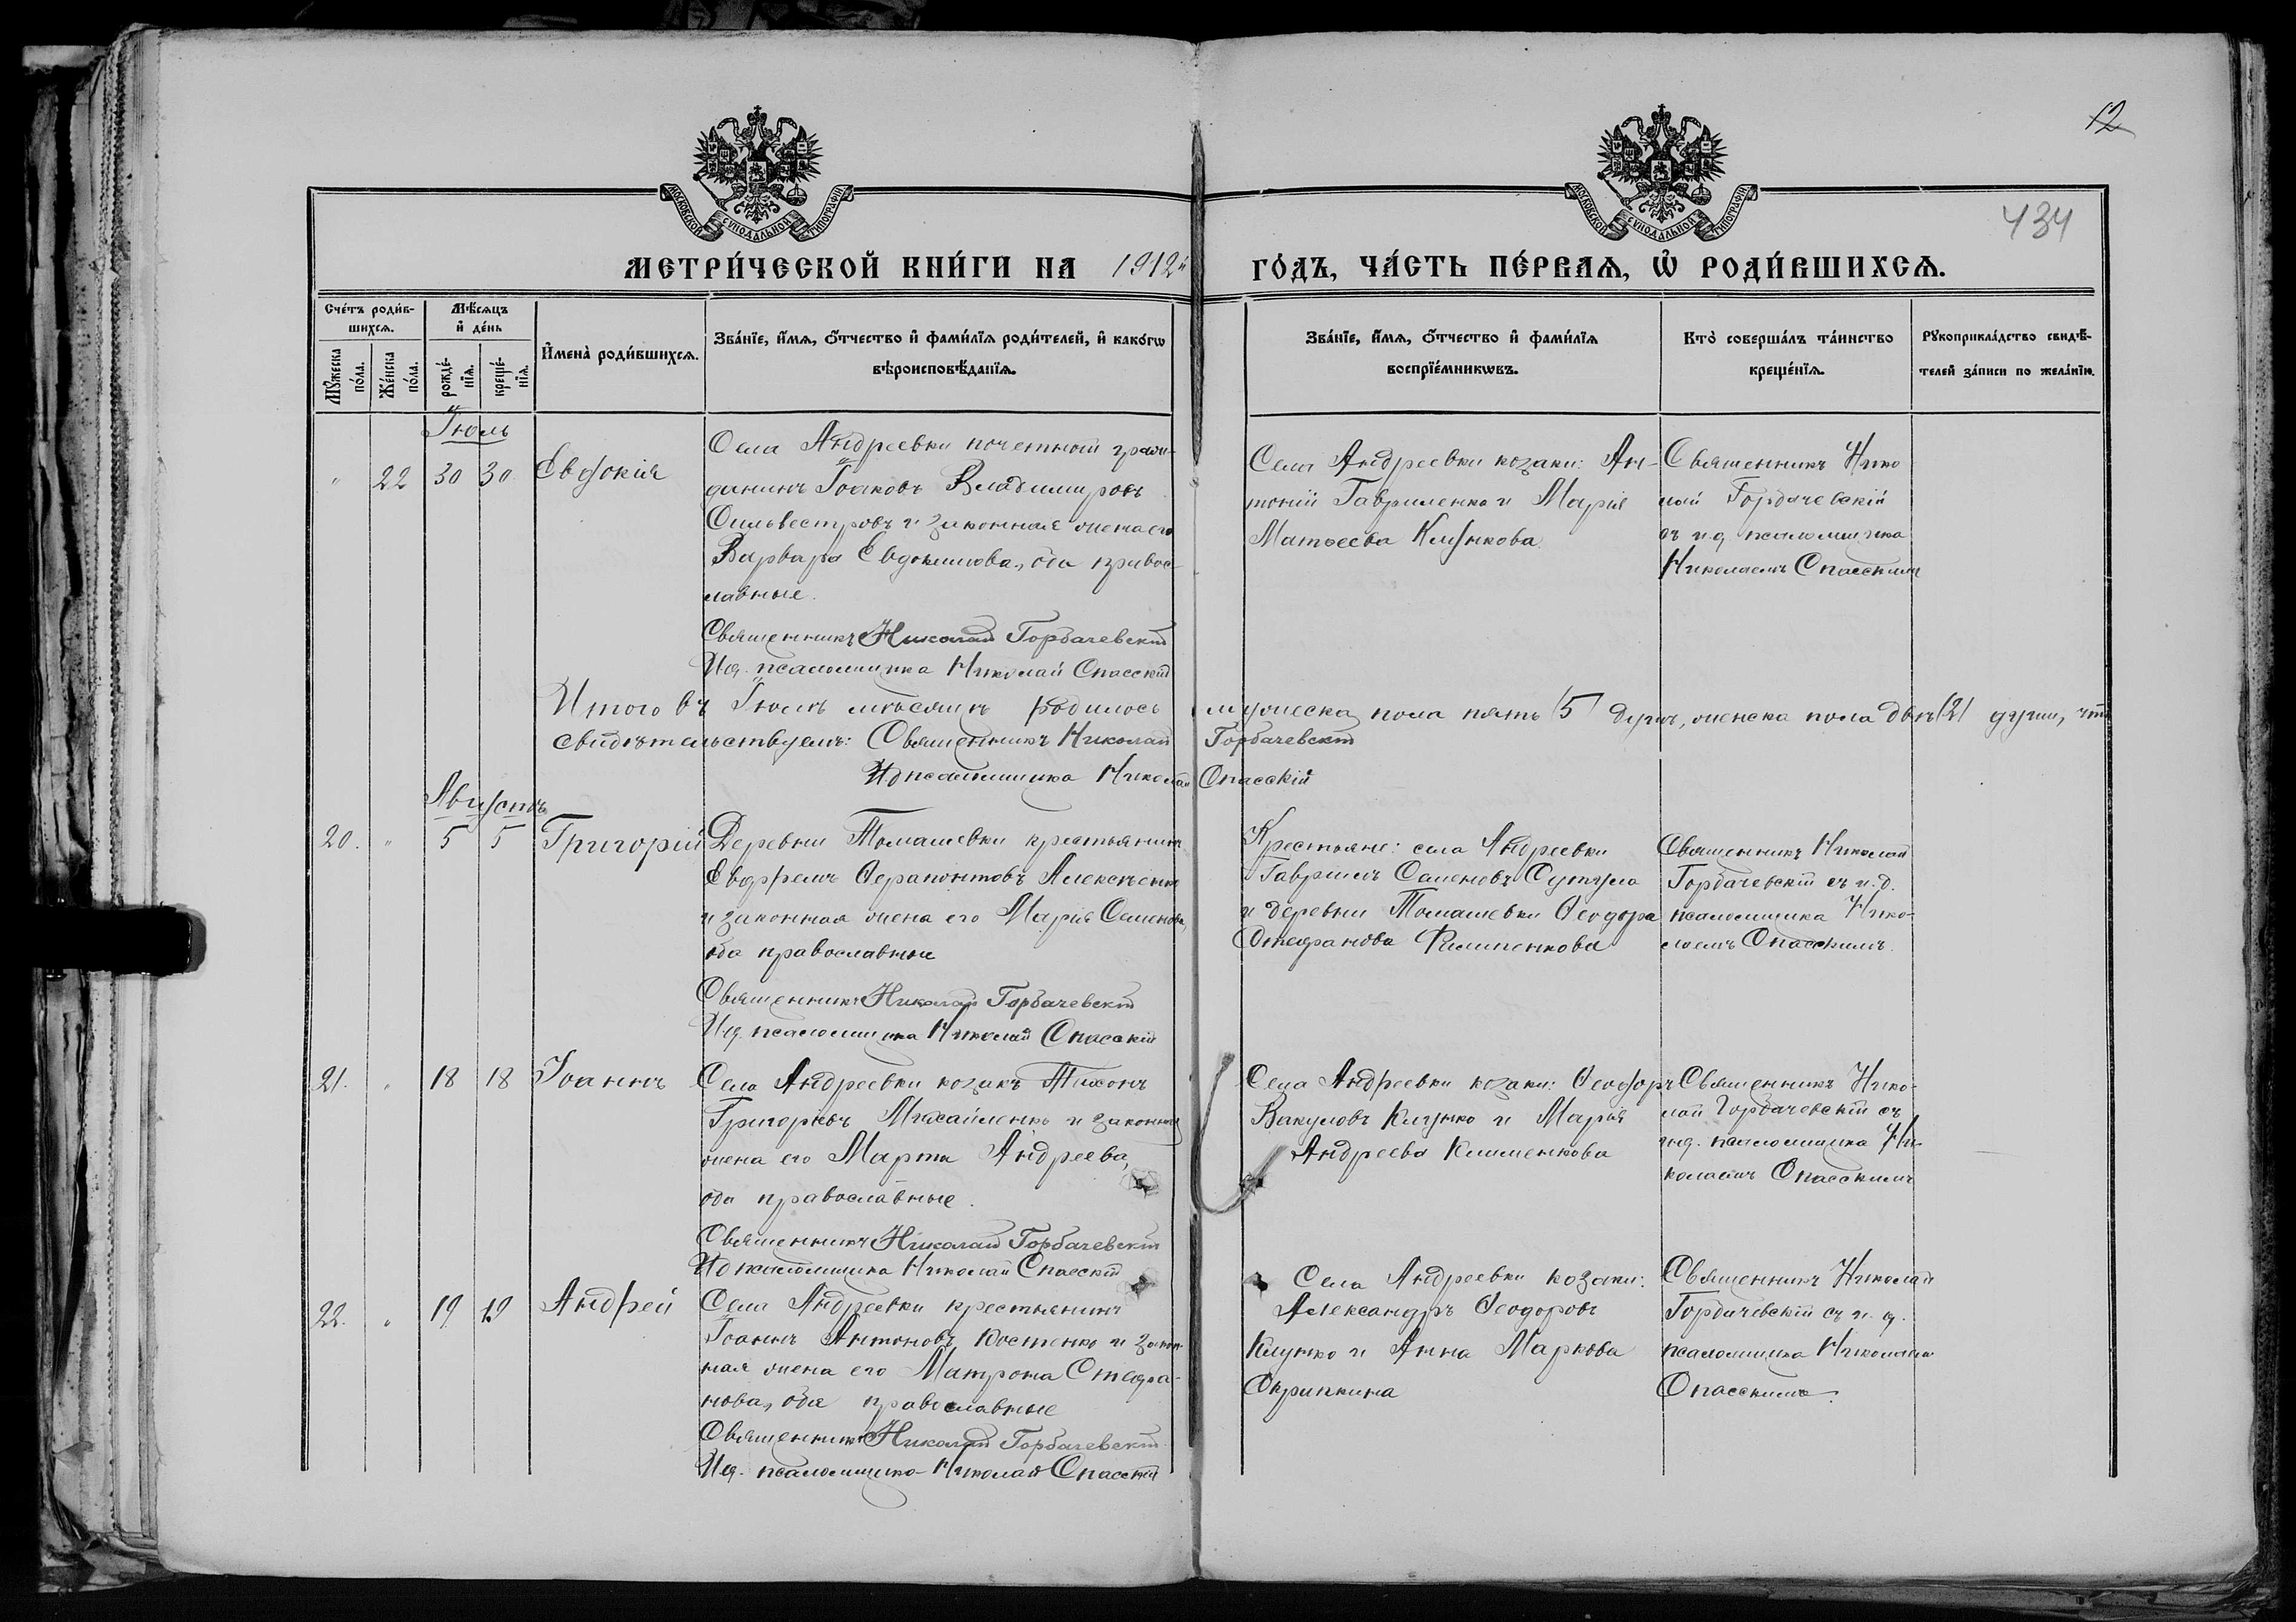 12
434
МОСКОВСКОЙ СУНОДАЛЬНОЙ ТИПОГРАФІИ
МОСКОВСКОЙ СУНОДАЛЬНОЙ ТИПОГРАФІИ
МЕТРИ́ЧЕСКОЙ КНИ́ГИ НА 1912й ГО́ДЪ, ЧА́СТЬ ПЕ́РВАЯ, Ѽ РОДИ́ВШИХСЯ.
Сче́тъ роди́в-
шихся.
Мѣ́сяцъ
и҆ де́нь
Мꙋ́жеска
по́ла.
Же́нска
по́ла.
рожде́-
нїя.
креще́-
нїя.
И҆мена̀ роди́вшихся.
Зва́нїе, и҆́мя, ѻ҆́тчество и҆ фами́лїя роди́телей, и҆ како́гѡ
вѣроисповѣ́данїя.
Зва́нїе, и҆́мя, ѻ҆́тчество и҆ фами́лїя
воспрїе́мникѡвъ.
Кто̀ соверша́лъ та́инство
креще́нїя.
Рꙋкоприкла́дство свидѣ́-
телей за́писи по жела́нїю.
Іюль
" 22 30 30 Евдокія
Села Андреевки почетный граж-
данинъ Іоаковъ Владимировъ
Сильвестровъ и законная жена его
Варвара Евдокимова, оба правос-
лавные.
Священникъ Николай Горбачевскій
Ид. псаломщика Николай Спасскій
Села Андреевки козаки: Ан-
тоній Гавриленко и Марія
Матѳеева Клункова
Священникъ Нико
лай Горбачевскій
съ и.д. псаломщика
Николаемъ Спасскимъ
Итого въ Іюлѣ мѣсяцѣ родилось мужеска пола пять /5/ душъ, женска пола двѣ /2/ души, что
свидѣтельствуемъ: Священникъ Николай Горбачевскій
Ид псаломщика Николай Спасскій
Августъ
20. " 5 5 Григорій
Деревни Томашевки крестьянинъ
Евдфемъ Ѳерапонтовъ Алексѣенко
и законная жена его Марія Семенова,
оба православные
Священникъ Николай Горбачевскій
Ид. псаломщика Николай Спасскій
Крестьяне: села Андреевки
Гавріилъ Семеновъ Сутула
и деревни Томашевки Ѳеодора
Стефанова Филипенкова
Священникъ Николай
Горбачевскій съ и.д.
псаломщика Нико-
лаемъ Спасскимъ.
21. " 18 18 Іоаннъ
Села Андреевки козакъ Тихонъ
Григорьевъ Михайленко и законная
жена его Марта Андреева,
оба православные.
Священникъ Николай Горбачевскій
Ид псаломщика Николай Спасскій
Села Андреевки козаки: Ѳеодоръ
Вакуловъ Клунко и Марія
Андреева Клименкова
Священникъ Нико-
лай Горбачевскій съ
ид. псаломщика Ни-
колаемъ Спасскимъ
22. " 19 19 Андрей
Села Андреевки крестьянинъ
Іоаннъ Антоновъ Костенко и закон-
ная жена его Матрона Стефа-
нова, оба православные
Священникъ Николай Горбачевскій
Ид. псаломщика Николай Спасскій
Села Андреевки козаки:
Александръ Ѳеодоровъ
Клунко и Анна Маркова
Скрипкина
Священникъ Николай
Горбачевскій съ и. д.
псаломщика Николаемъ
Спасскимъ.